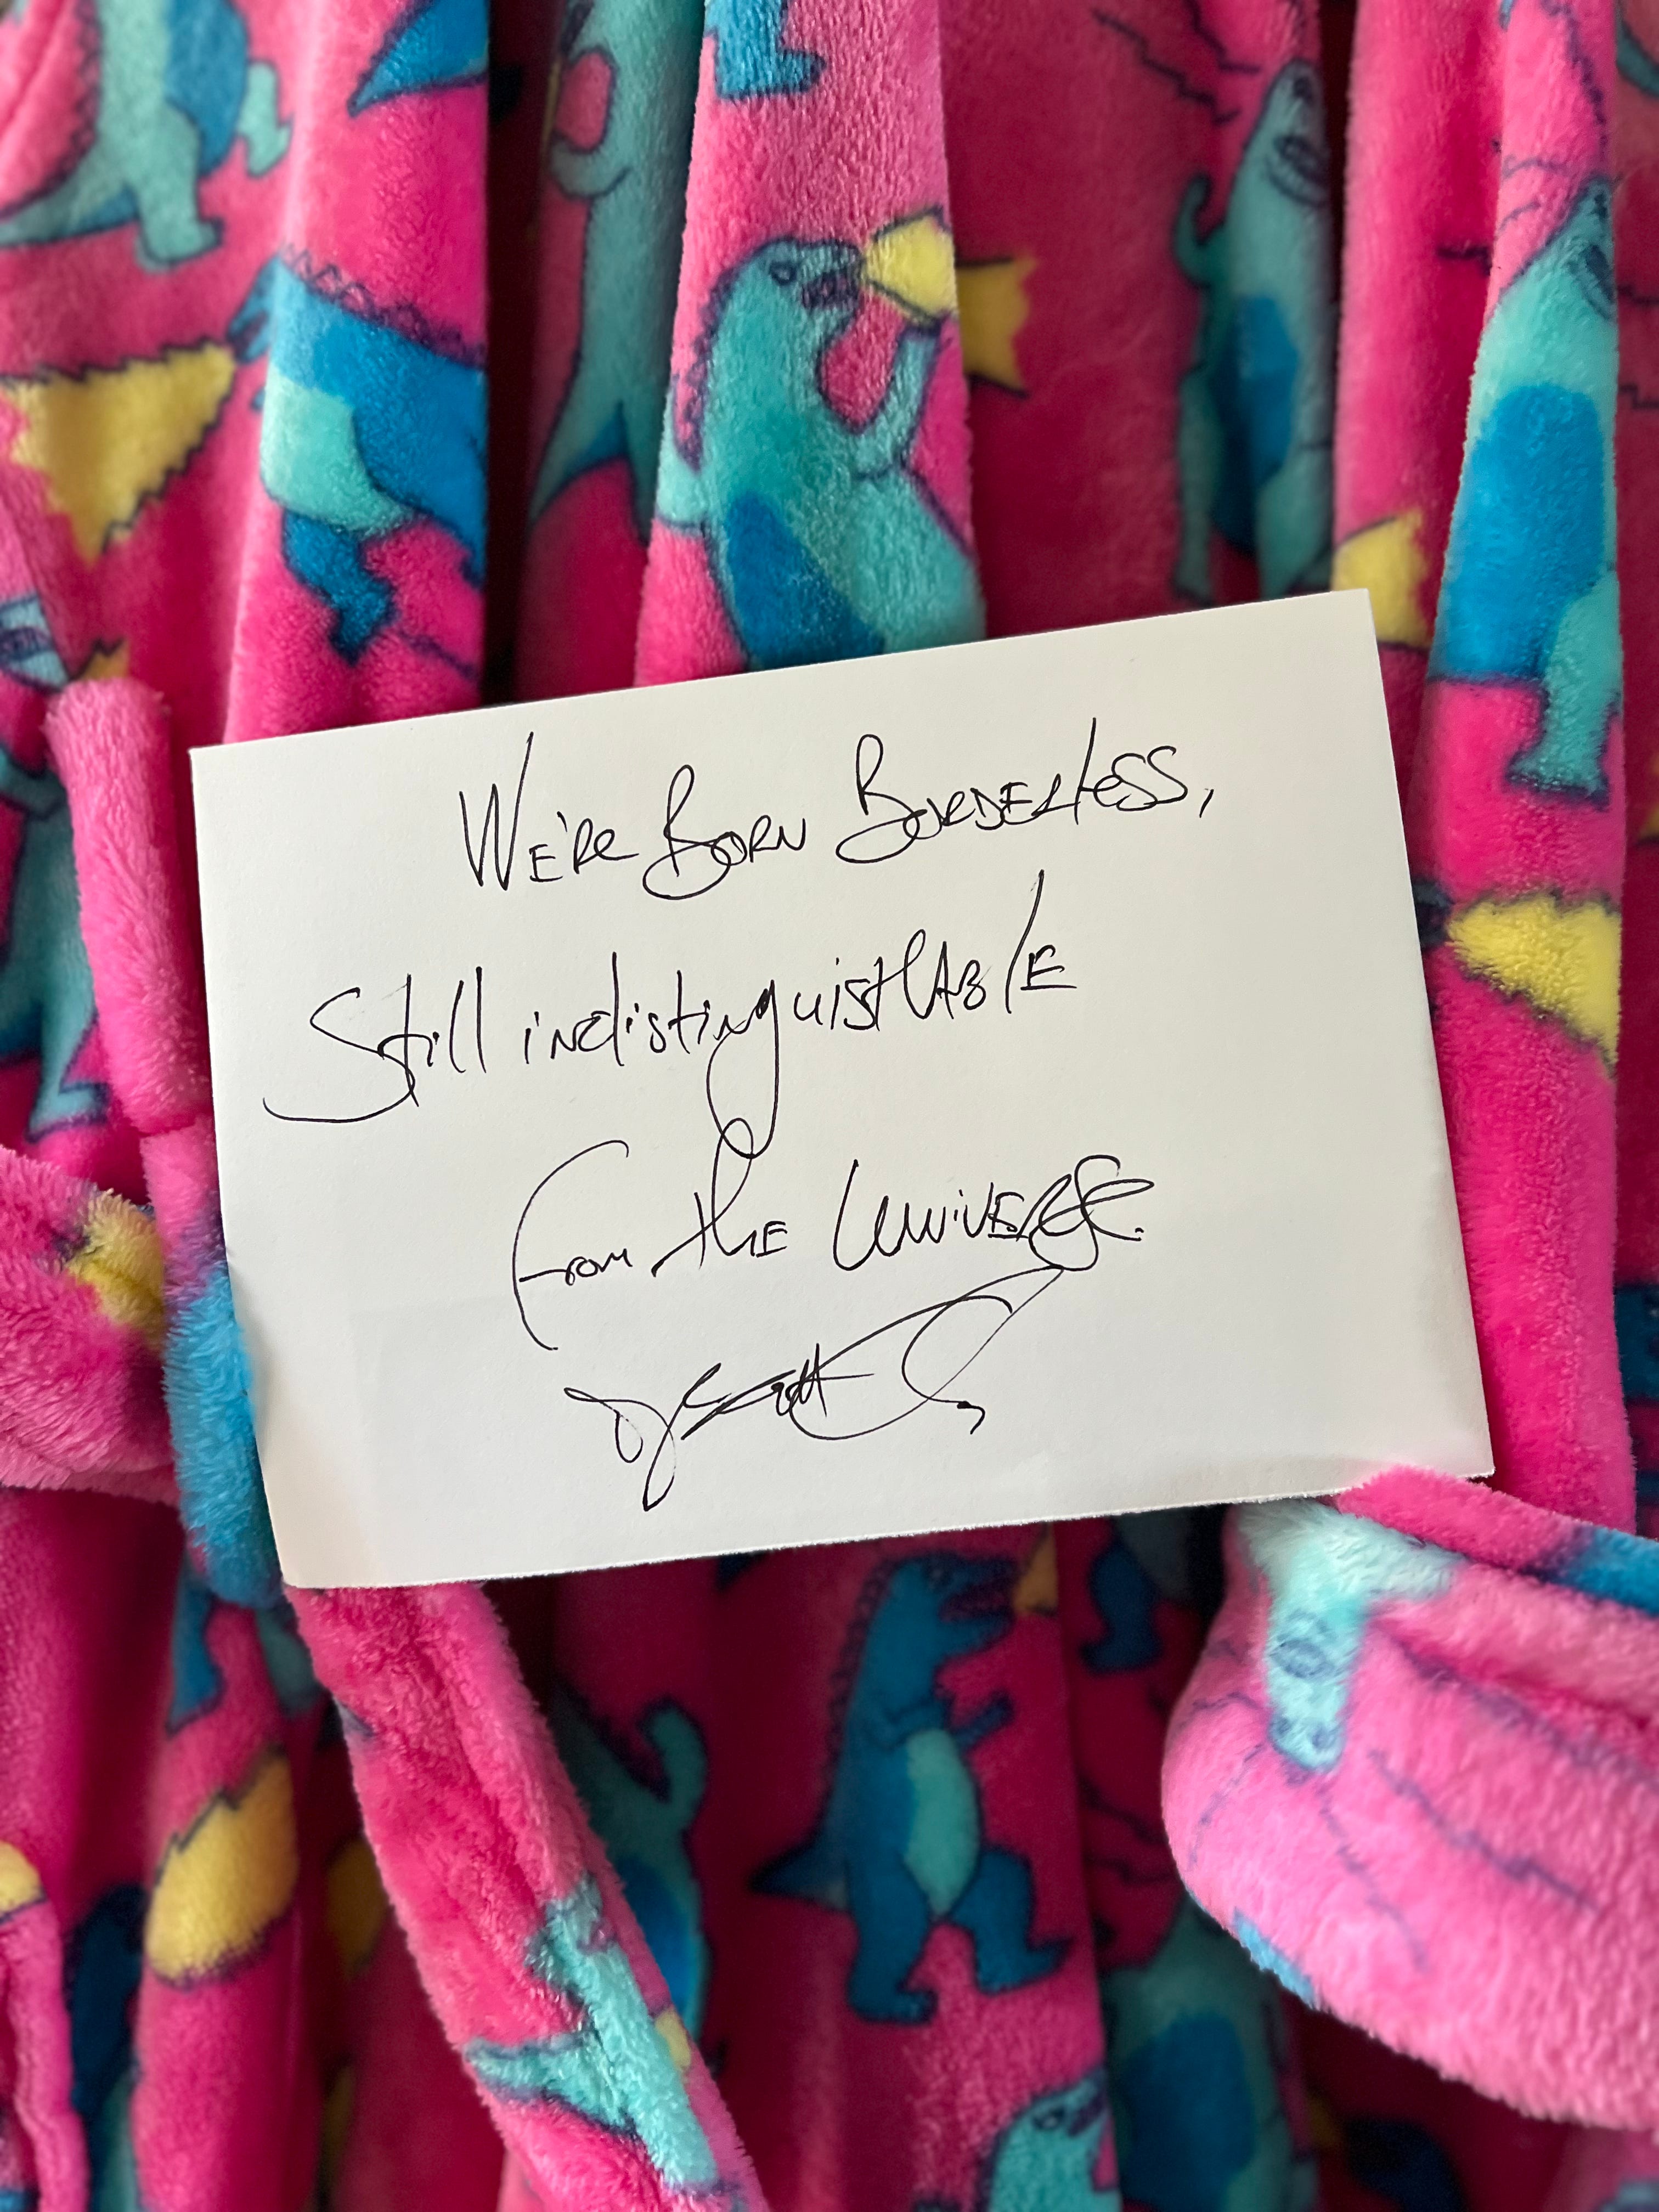 We're Born Borderless,
Still indistinguishable
from the Universe.